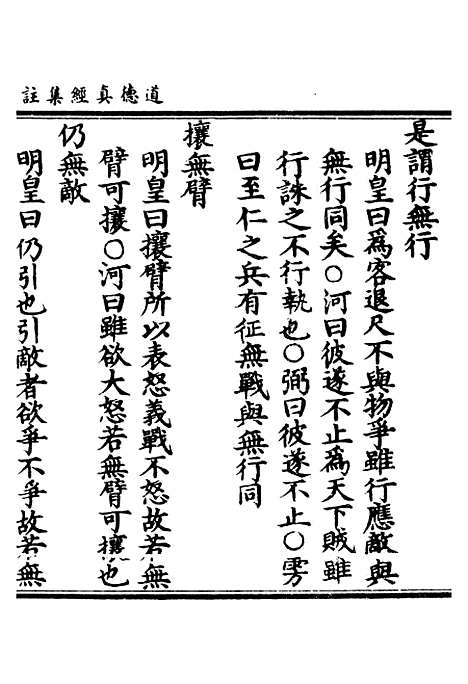 道德真經集註
是謂行無行
明皇曰爲客退尺不與物爭雖行應敵與
無行同矣○河曰彼遂不止爲天下賊雖
行誅之不行執也○弼曰彼遂不止○雱
曰至仁之兵有征無戰與無行同
攘無臂
明皇曰攘臂所以表怒義戰不怒故若無
臂可攘○河曰雖欲大怒若無臂可攘也
仍無敵
明皇曰仍引也引敵者欲爭不爭故若無